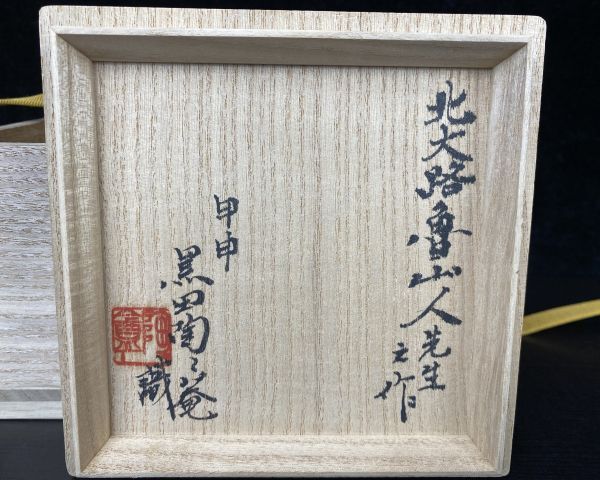 北大路魯山人先生
之作
甲申
黒田陶々庵
識